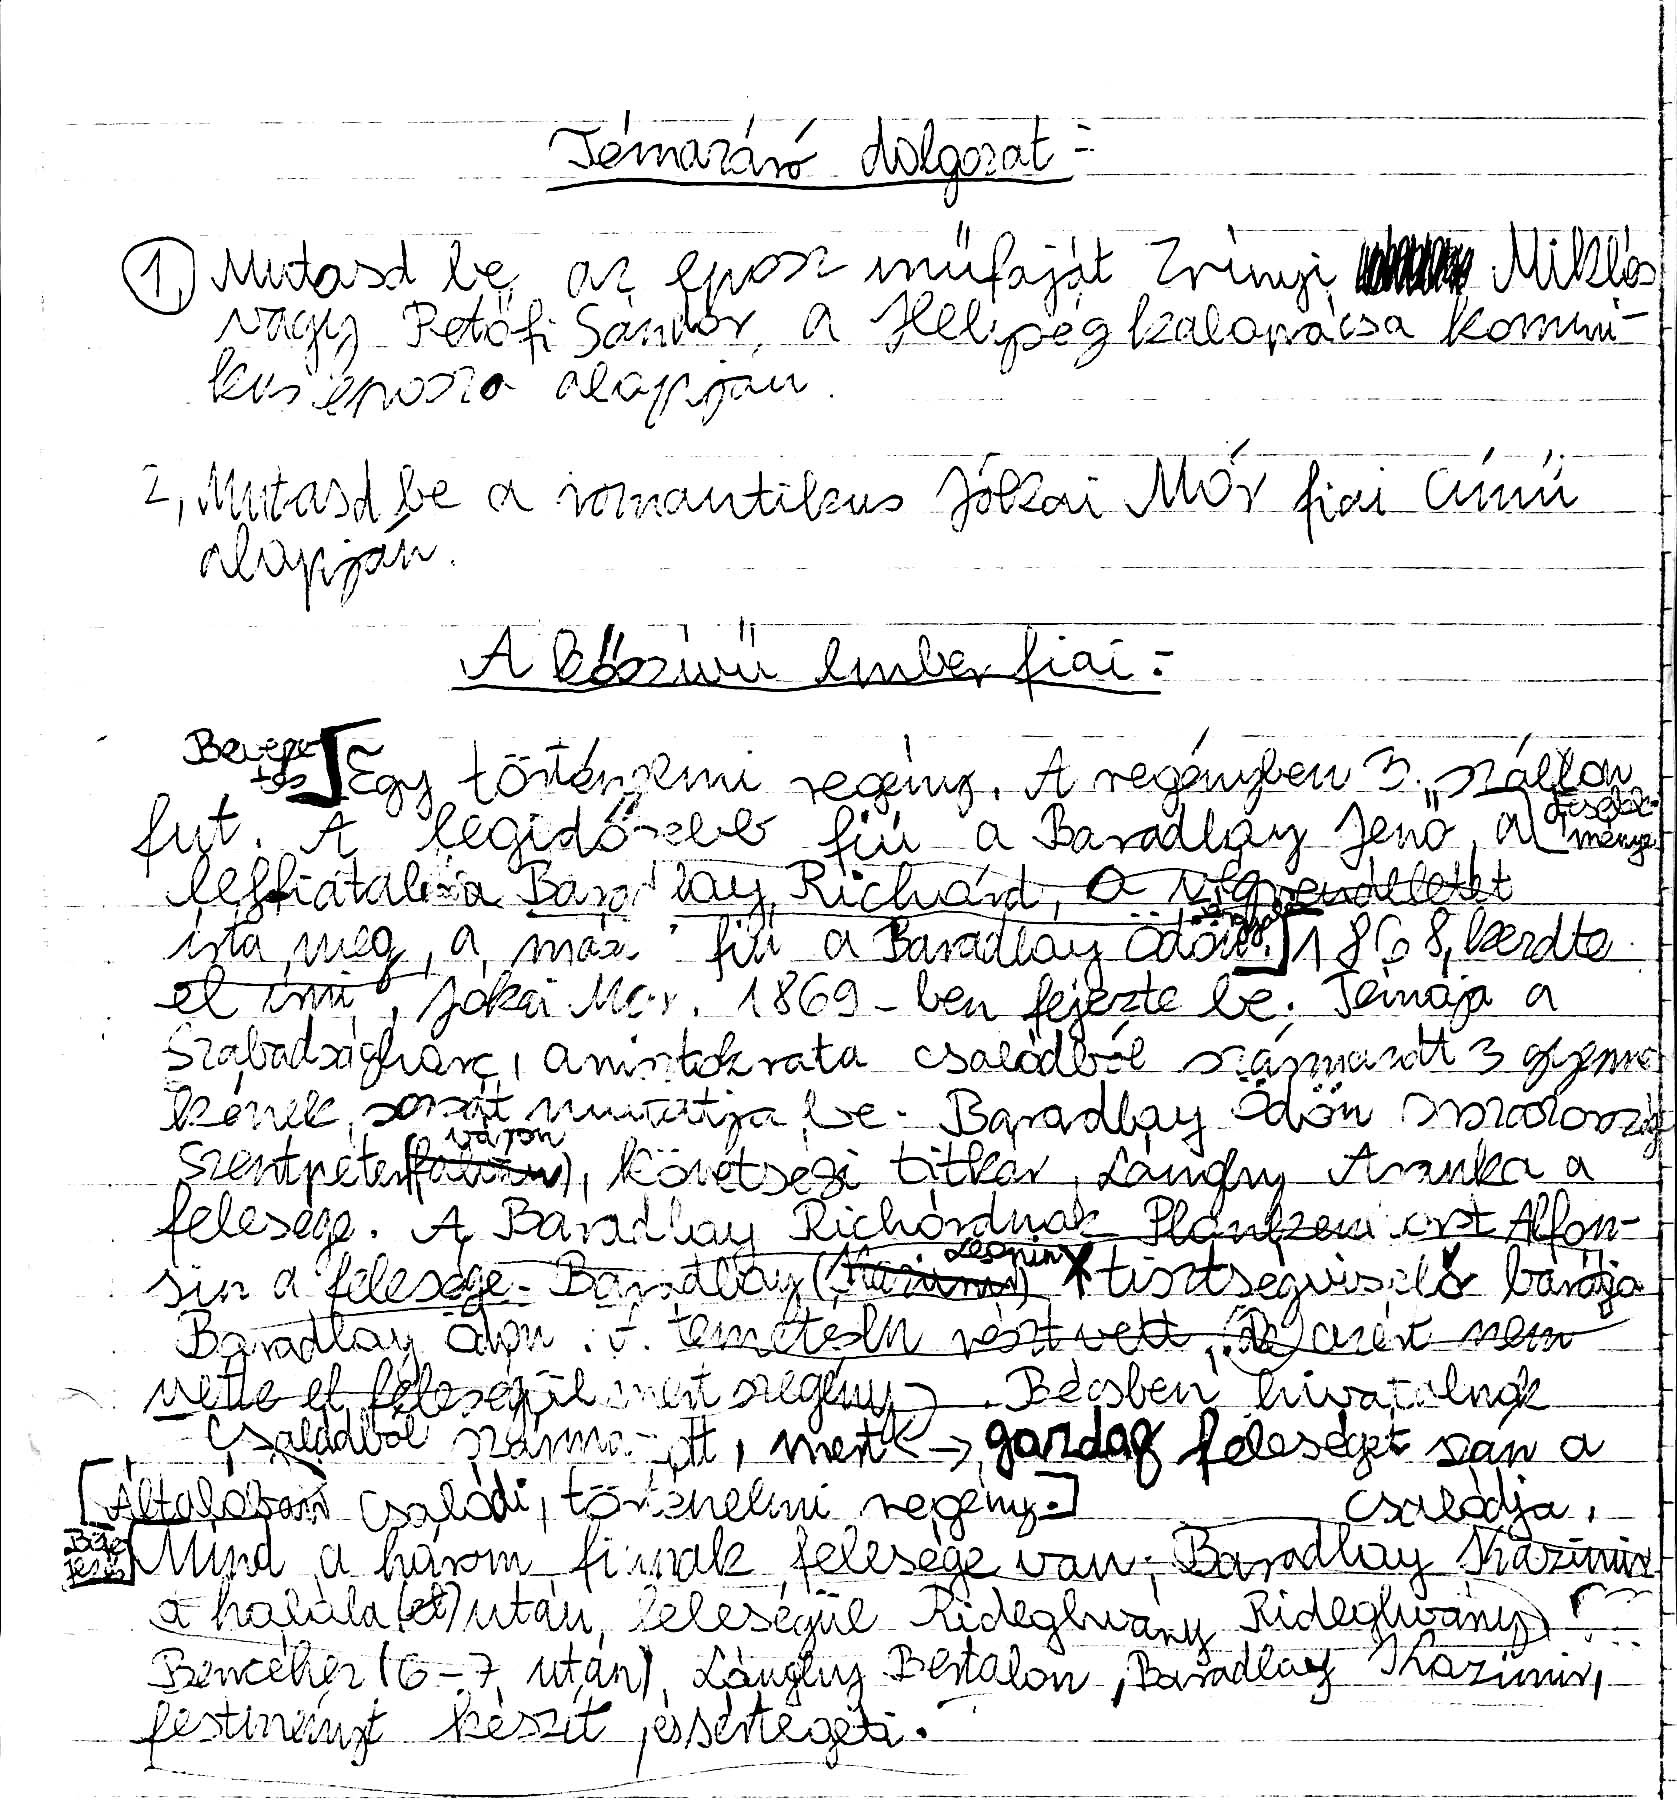 Témazáró dolgozat:
1, Mutasd be az eposz műfaját Zrinyi Miklós
vagy Petőfi Sándor, a Helység kalapácsa kommi-
kus eposza alapján.
2, Mutasd be a romantikus Jókai Mór fiai című
alapján.
A kőszívű ember fiai:
Beveze-
tés
Egy történelmi regény. A regényben 3. szállon
fut. A legidősebb fiú a Baradlay Jenő, a
cselek-
ménye
legfiatalabb a Baradlay Richárd, a végrendeletét
írta meg, a más fiú a Baradlay Ödön. 1868, kezdte
el írni, Jókai Mór. 1869-ben fejezte be. Témája a
Szabadságharc, arisztokrata családból származott 3 gyerme
kének sorsát mutatja be. Baradlay Ödön oroszország
Szentpéter(váron), követségi titkár, Lánghy Aranka a
felesége. A Baradlay Richárdnak Plankenhorst Alfon-
sin a felesége. Baradlay ( Leonin tisztségviselő barátja
Baradlay Ödön. temetésén részt vett, azért nem
vette el feleségül mert szegény . Bécsben hivatalnok
családból származott, mert → gazdag feleséget szán a
Általában családi, történelmi regény. családja,
Befe-
jezés
Mind a három fiúnak felesége van, Baradlay Kazimir
a halála után, feleségül Rideghváry Rideghváry
Bencéhez (6-7 után), Lánghy Bertalan, Baradlay Kazimir,
festményt készít, és sértegeti.